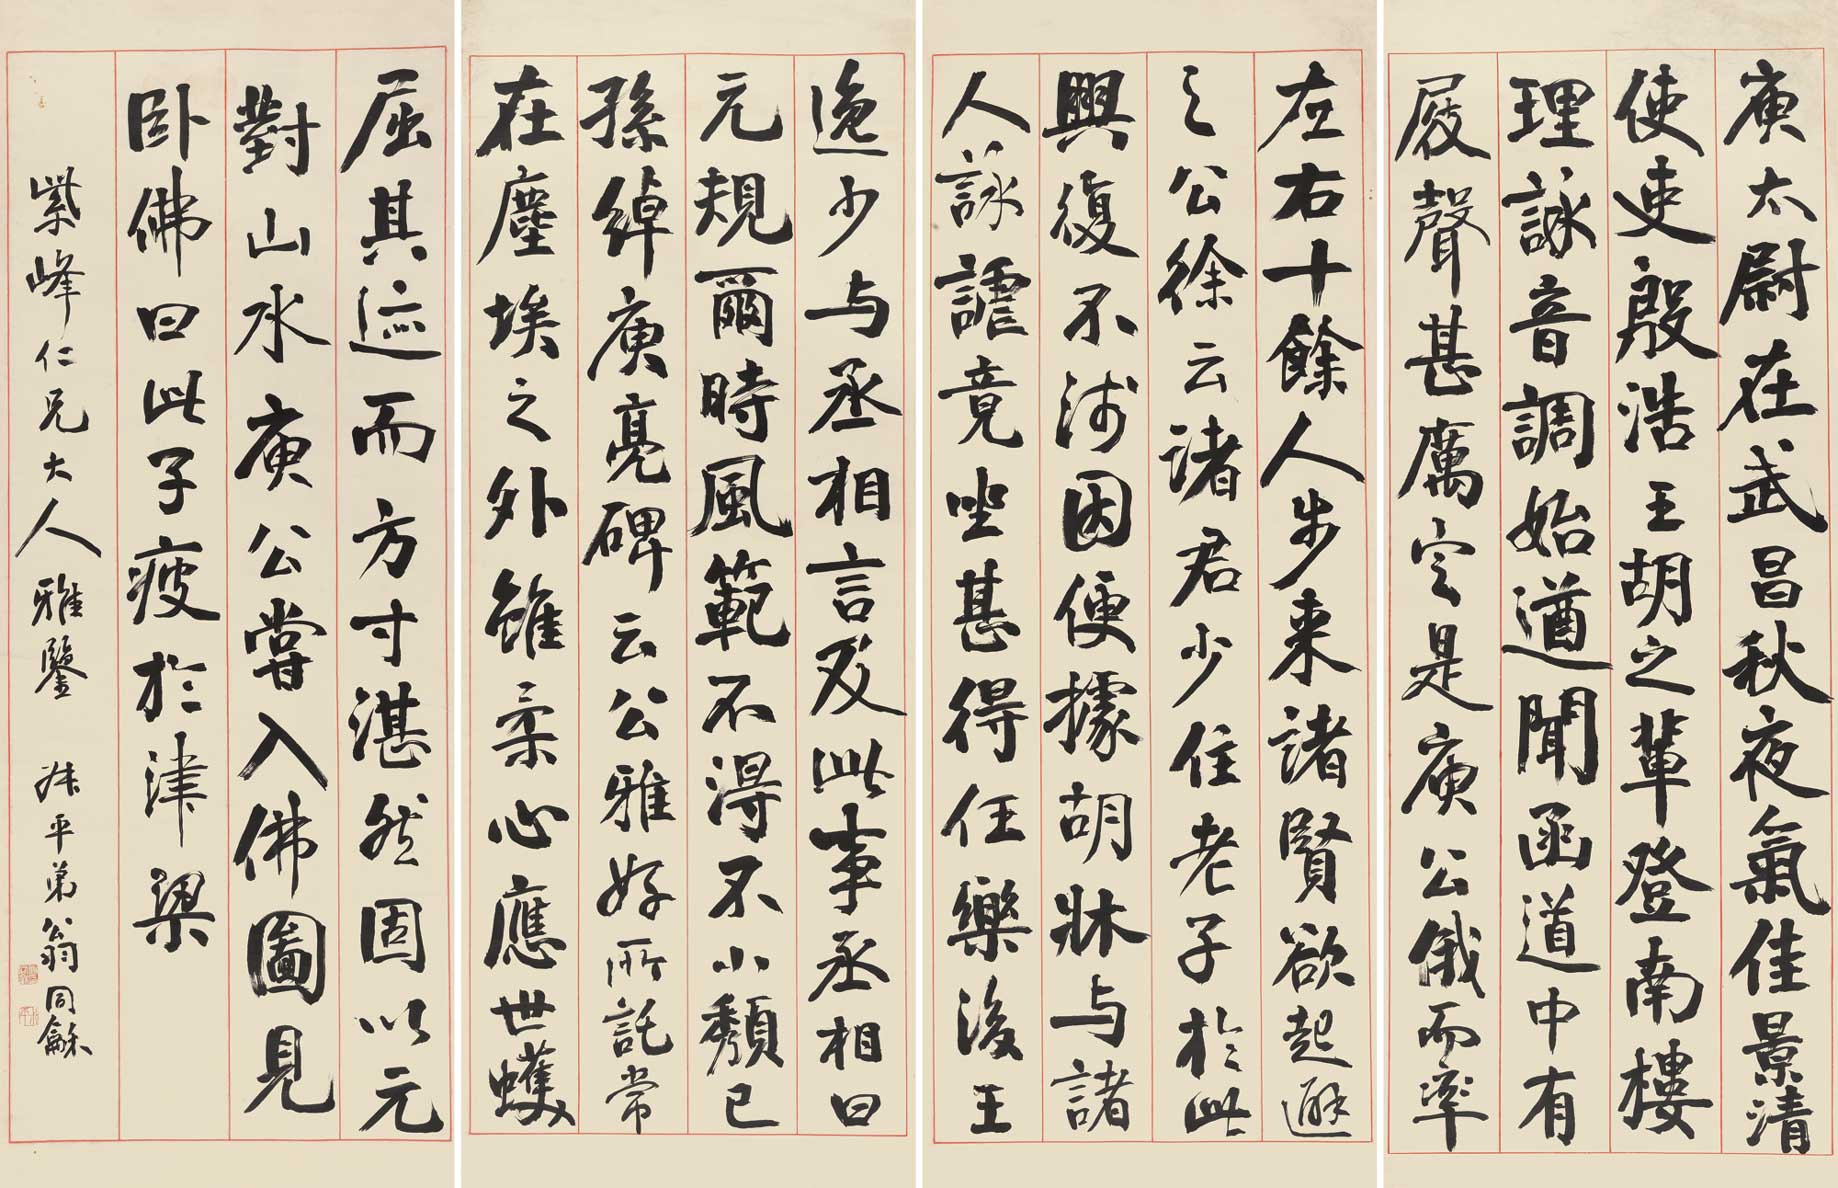 庾太尉在武昌秋夜氣佳景清
使吏殷浩王胡之輩登南樓
理詠音調始遒聞函道中有
屐聲甚厲定是庾公俄而率
左右十餘人步来諸賢欲起避
之公徐云諸君少住老子於此
興復不淺因便據胡牀與諸
人詠謔竟坐甚得任樂後王
逸少与丞相言及此事丞相曰
元規爾時風範不得不小頹已
孫綽庾亮碑云公雅好所託常
在塵埃之外雖柔心應世蠖
屈其迹而方寸湛然固以元
對山水庾公嘗入佛圖見
卧佛曰此子疲於津梁
紫峰仁兄大人雅鑒 叔平弟翁同龢